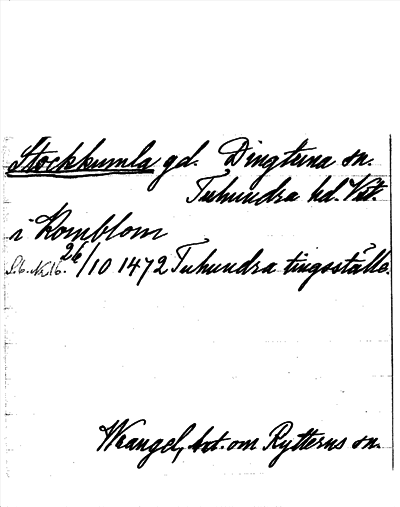 Stockkumla gd. Dingtuna sn.
Tuhundra hd. Vstm.
i Komblom
26/10 1472 Tuhundra tingsställe.
Wrangel, bet. om Rytterns sn.